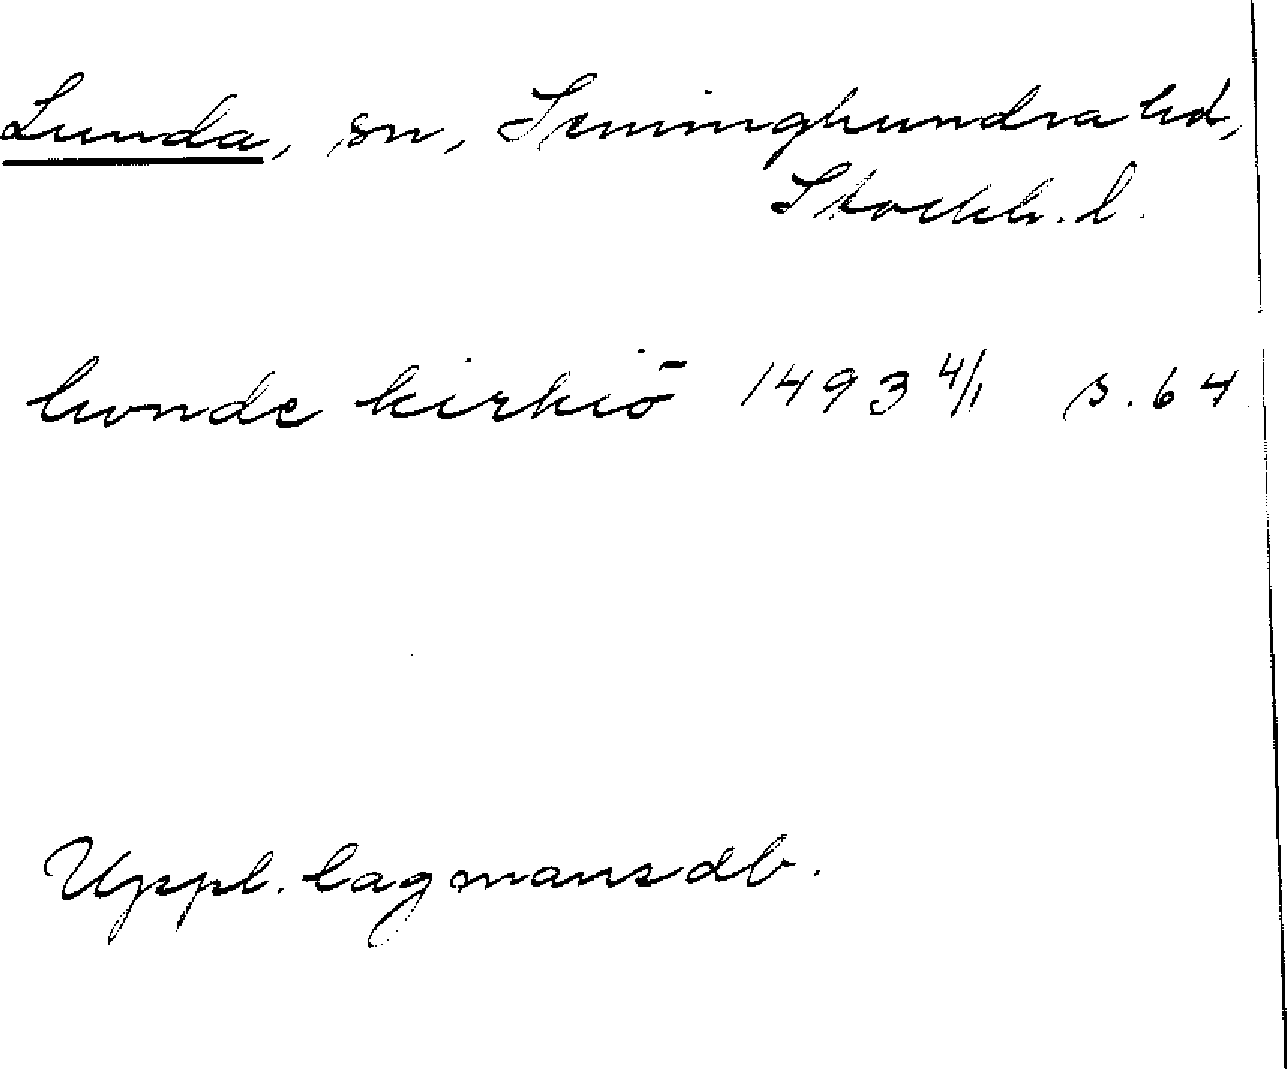 Lunda, sn, Seminghundra hd,
Stockh. l.
lwnde kirkiō 1493 4/1 s. 64
Uppl. lagmansdb.